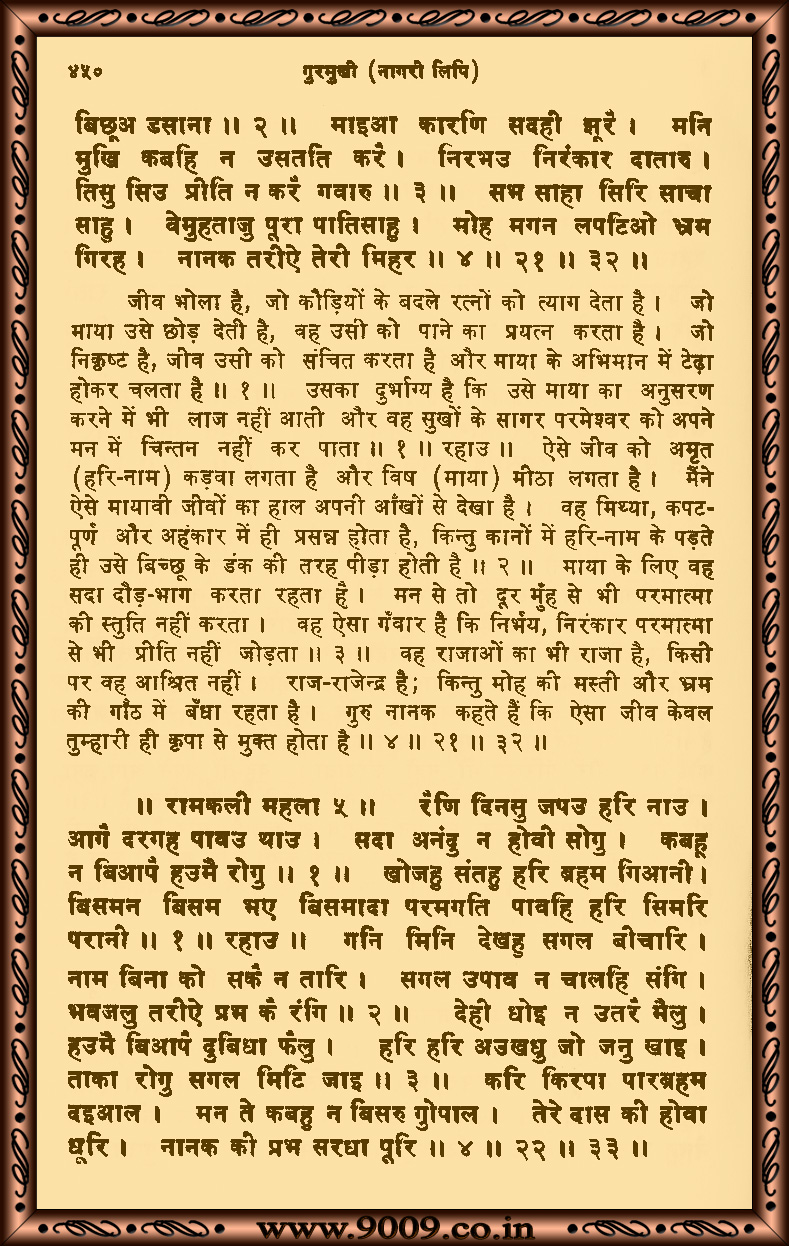 ४५० गुरमुखी (नागरी लिपि)
बिछूअ डसाना ॥ २ ॥ माइआ कारणि सदही झूरै । मनि
मुखि कबहि न उसतति करै । निरभउ निरंकार दातारु ।
तिसु सिउ प्रीति न करै गवारु ॥ ३ ॥ सभ साहा सिरि साचा
साहु । वेमुहताजु पूरा पातिसाहु । मोह मगन लपटिओ भ्रम
गिरह । नानक तरीऐ तेरी मिहर ॥ ४ ॥ २१ ॥ ३२ ॥
जीव भोला है, जो कौड़ियों के बदले रत्नों को त्याग देता है । जो
माया उसे छोड़ देती है, वह उसी को पाने का प्रयत्न करता है । जो
निकृष्ट है, जीव उसी को संचित करता है और माया के अभिमान में टेढ़ा
होकर चलता है ॥ १ ॥ उसका दुर्भाग्य है कि उसे माया का अनुसरण
करने में भी लाज नहीं आती और वह सुखों के सागर परमेश्वर को अपने
मन में चिन्तन नहीं कर पाता ॥ १ ॥ रहाउ ॥ ऐसे जीव को अमृत
(हरि-नाम) कड़वा लगता है और विष (माया) मीठा लगता है । मैंने
ऐसे मायावी जीवों का हाल अपनी आँखों से देखा है । वह मिथ्या, कपट-
पूर्ण और अहंकार में ही प्रसन्न होता है, किन्तु कानों में हरि-नाम के पड़ते
ही उसे बिच्छू के डंक की तरह पीड़ा होती है ॥ २ ॥ माया के लिए वह
सदा दौड़-भाग करता रहता है । मन से तो दूर मुँह से भी परमात्मा
की स्तुति नहीं करता । वह ऐसा गँवार है कि निर्भय, निरंकार परमात्मा
से भी प्रीति नहीं जोड़ता ॥ ३ ॥ वह राजाओं का भी राजा है, किसी
पर वह आश्रित नहीं । राज-राजेन्द्र है; किन्तु मोह की मस्ती और भ्रम
की गाँठ में बँधा रहता है । गुरु नानक कहते हैं कि ऐसा जीव केवल
तुम्हारी ही कृपा से मुक्त होता है ॥ ४ ॥ २१ ॥ ३२ ॥
॥ रामकली महला ५ ॥ रैणि दिनसु जपउ हरि नाउ ।
आगै दरगह पावउ थाउ । सदा अनंदु न होवी सोगु । कबहू
न बिआपै हउमै रोगु ॥ १ ॥ खोजहु संतहु हरि ब्रहम गिआनी ।
बिसमन बिसम भए बिसमादा परमगति पावहि हरि सिमरि
परानी ॥ १ ॥ रहाउ ॥ गनि मिनि देखहु सगल बीचारि ।
नाम बिना को सकै न तारि । सगल उपाव न चालहि संगि ।
भवजलु तरीऐ प्रभ कै रंगि ॥ २ ॥ देही धोइ न उतरै मैलु ।
हउमै बिआपै दुबिधा फैलु । हरि हरि अउखधु जो जनु खाइ ।
ताका रोगु सगल मिटि जाइ ॥ ३ ॥ करि किरपा पारब्रहम
दइआल । मन ते कबहु न बिसरु गुोपाल । तेरे दास की होवा
धूरि । नानक की प्रभ सरधा पूरि ॥ ४ ॥ २२ ॥ ३३ ॥
www.9009.co.in